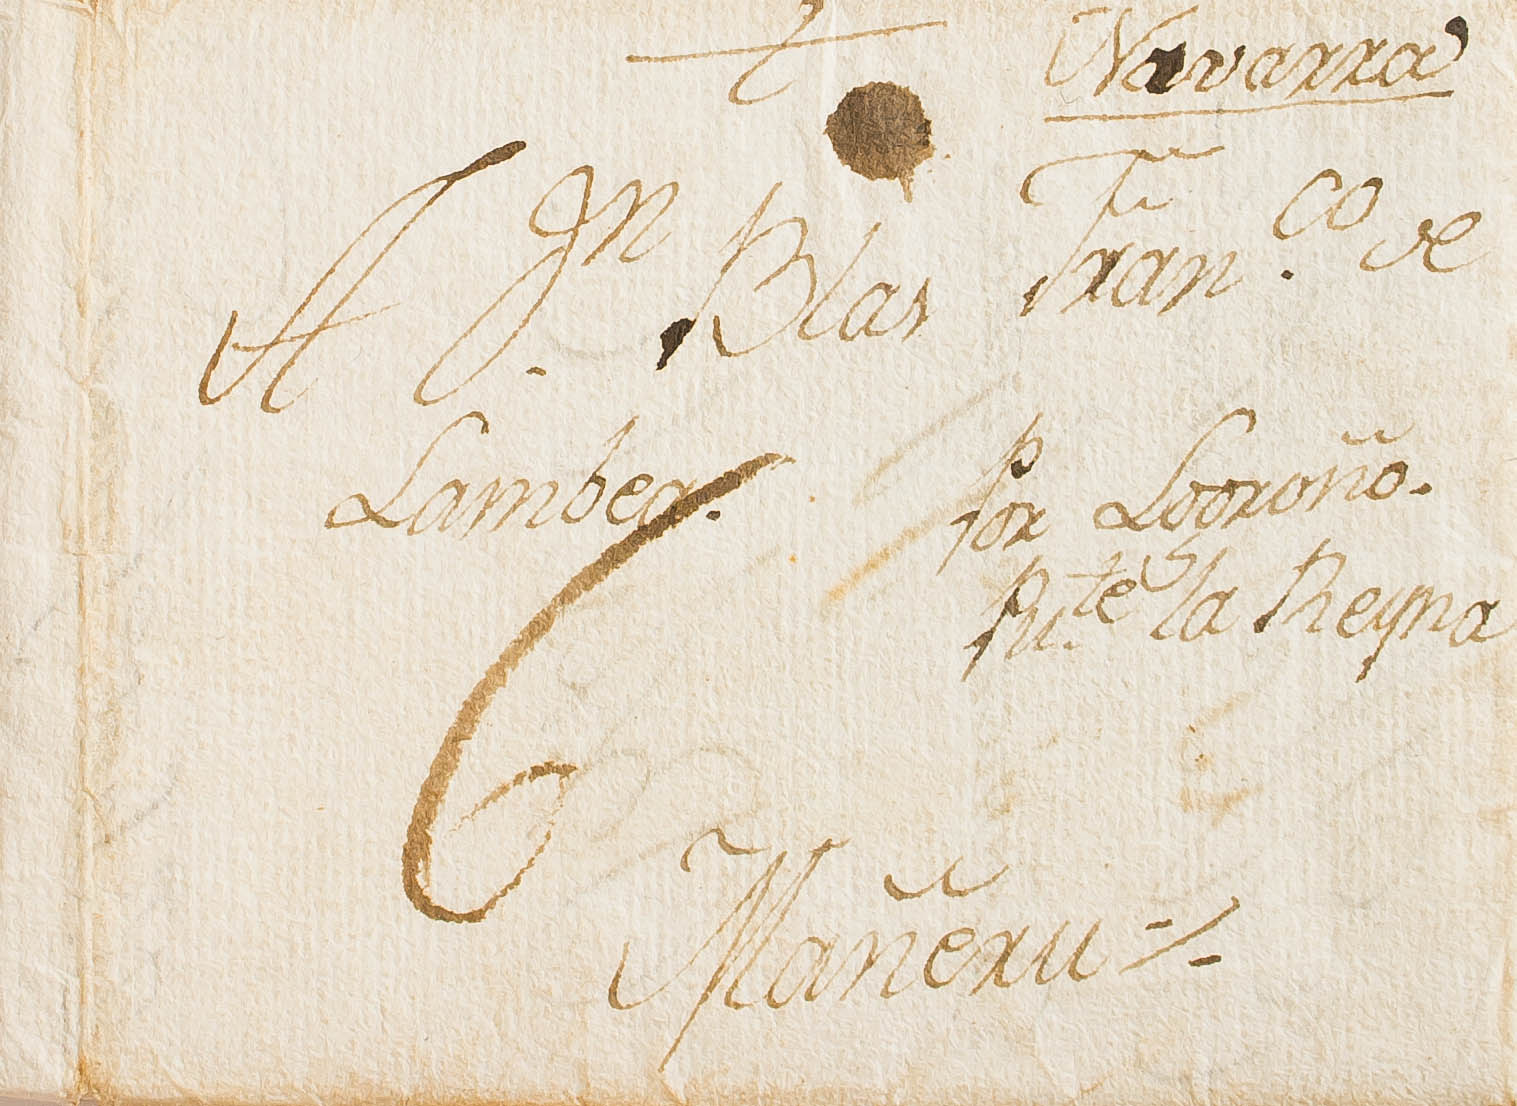 Navarra
A Dn. Blas Fran.co de
Lambea.
Por Logroño.
Pu.te la Reyna
6
Mañeru